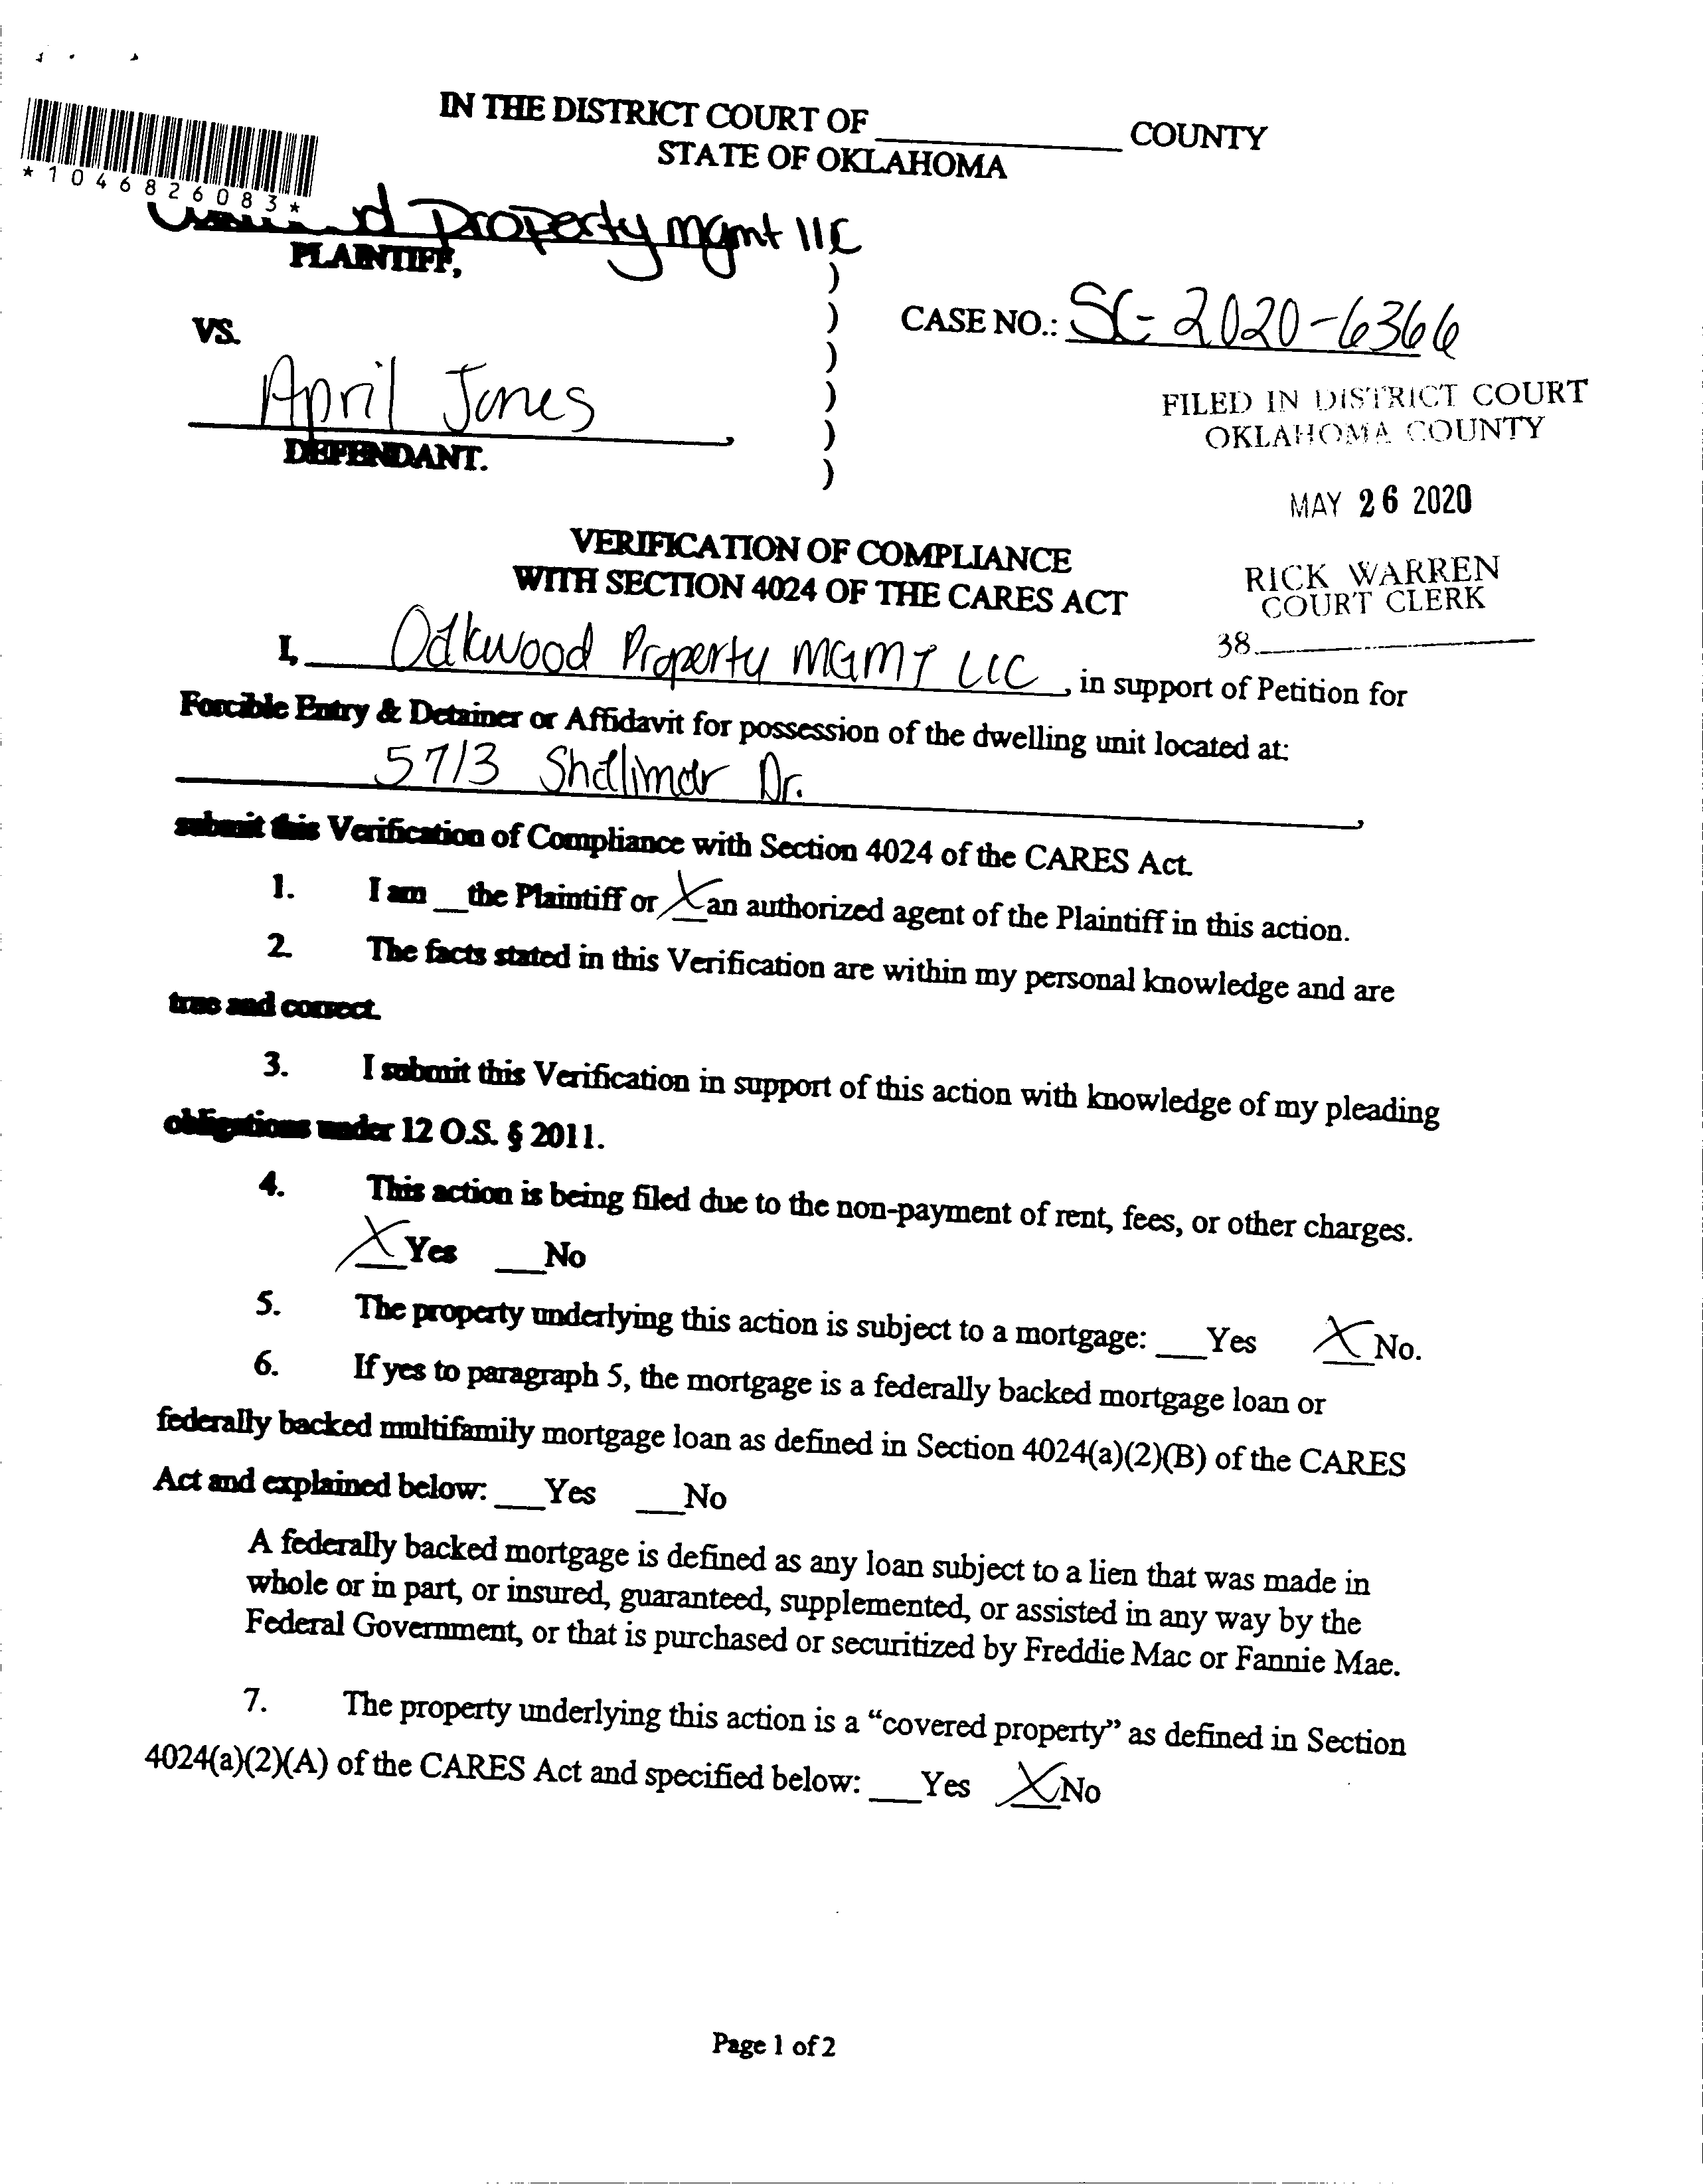 IN THE DISTRICT COURT OF ____________ COUNTY
STATE OF OKLAHOMA
*1046826083*
Property mgmt llc
PLAINTIFF,
VS.
CASE NO.: SC-2020-6366
April Jones,
DEFENDANT.
)
)
)
)
)
)
FILED IN DISTRICT COURT
OKLAHOMA COUNTY
MAY 26 2020
RICK WARREN
COURT CLERK
38.____________
VERIFICATION OF COMPLIANCE
WITH SECTION 4024 OF THE CARES ACT
I, Oakwood Property MGMT LLC, in support of Petition for
Forcible Entry & Detainer or Affidavit for possession of the dwelling unit located at:
5713 Shalimar Dr.,
submit this Verification of Compliance with Section 4024 of the CARES Act.
1. I am __the Plaintiff or X an authorized agent of the Plaintiff in this action.
2. The facts stated in this Verification are within my personal knowledge and are
true and correct.
3. I submit this Verification in support of this action with knowledge of my pleading
obligations under 12 O.S. § 2011.
4. This action is being filed due to the non-payment of rent, fees, or other charges.
X Yes ___No
5. The property underlying this action is subject to a mortgage: ___Yes X No.
6. If yes to paragraph 5, the mortgage is a federally backed mortgage loan or
federally backed multifamily mortgage loan as defined in Section 4024(a)(2)(B) of the CARES
Act and explained below: ___Yes ___No
A federally backed mortgage is defined as any loan subject to a lien that was made in
whole or in part, or insured, guaranteed, supplemented, or assisted in any way by the
Federal Government, or that is purchased or securitized by Freddie Mac or Fannie Mae.
7. The property underlying this action is a “covered property” as defined in Section
4024(a)(2)(A) of the CARES Act and specified below: ___Yes X No
Page 1 of 2